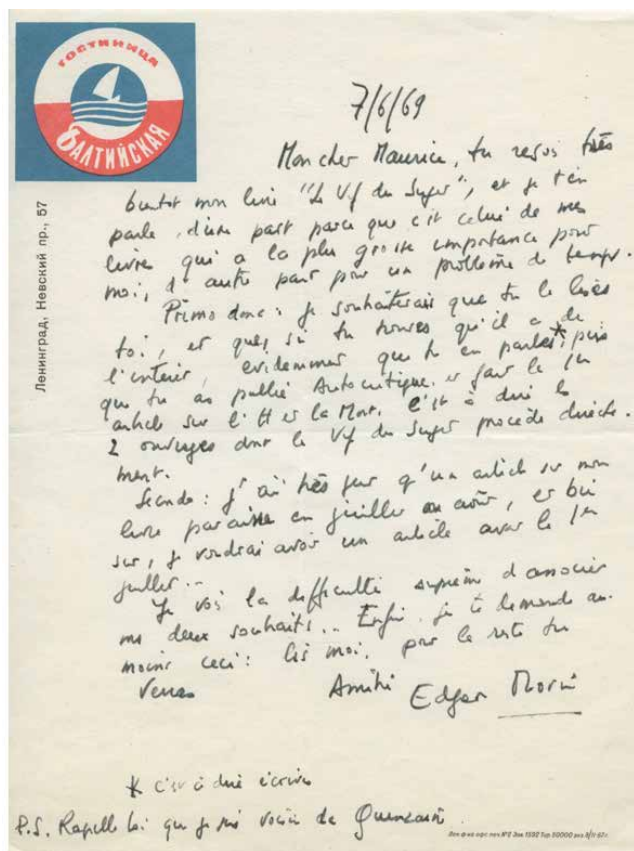 ГОСТИНИЦА
БАЛТИЙСКАЯ
Ленинград, Невский пр., 57
7/6/69
Mon cher Maurice, tu reçois très
bientot mon livre "Le Vif du Sujet", et je t'en
parle, d'une part parce que c'est celui de mes
livres qui a la plus grosse importance pour
moi, d'autre part pour un problème de temps.
Primo donc : je souhaiterais que tu le lises
toi, et que, si tu trouves qu'il a de
l'intérêt, evidemment que tu en parles*, puis
que tu as publié Autocritique et fait le 1er
article sur l'H et la Mort, c'est à dire les
2 ouvrages dont le Vif du Sujet procède directe-
ment.
Secundo : j'ai très peur qu'un article sur mon
livre paraisse en juillet ou août, et bien
sur, je voudrai avoir un article avant le 1er
juillet..
Je vois la difficulté suprême d'associer
mes deux souhaits.. Enfin, je te demande au
moins ceci : lis moi, pour le reste tu
verras
Amitié
Edgar Morin
* c'est à dire écrives
P.S. Rapelle toi que je suis voisin de